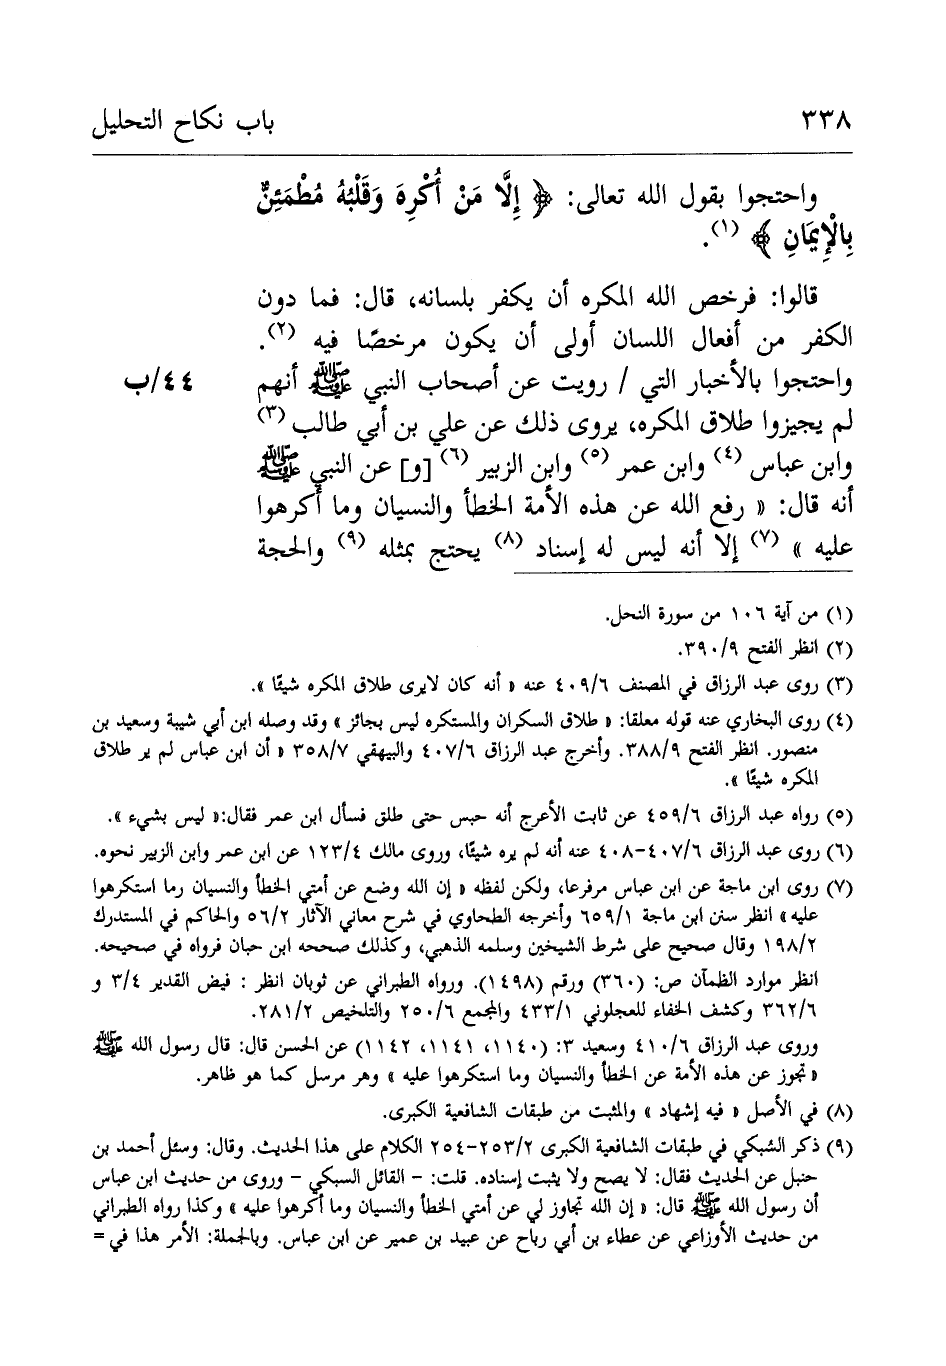 ٣٣٨ باب نكاح التحليل
واحتجوا بقول الله تعالى: ﴿ إِلَّا مَنْ أُكْرِهَ وَقَلْبُهُ مُطْمَئِنٌّ
بِالْإِيمَانِ ﴾ (١).
قالوا: فرخص الله المكره أن يكفر بلسانه، قال: فما دون
الكفر من أفعال اللسان أولى أن يكون مرخصًا فيه (٢).
واحتجوا بالأخبار التي / رويت عن أصحاب النبي ﷺ أنهم ٤٤/ب
لم يجيزوا طلاق المكره، يروى ذلك عن علي بن أبي طالب (٣)
وابن عباس (٤) وابن عمر (٥) وابن الزبير (٦) [و] عن النبي ﷺ
أنه قال: « رفع الله عن هذه الأمة الخطأ والنسيان وما أكرهوا
عليه » (٧) إلا أنه ليس له إسناد (٨) يحتج بمثله (٩) والحجة
(١) من آية ١٠٦ من سورة النحل.
(٢) انظر الفتح ٣٩٠/٩.
(٣) روى عبد الرزاق في المصنف ٤٠٩/٦ عنه « أنه كان لايرى طلاق المكره شيئًا ».
(٤) روى البخاري عنه قوله معلقا: « طلاق السكران والمستكره ليس بجائز » وقد وصله ابن أبي شيبة وسعيد بن
منصور. انظر الفتح ٣٨٨/٩. وأخرج عبد الرزاق ٤٠٧/٦ والبيهقي ٣٥٨/٧ « أن ابن عباس لم ير طلاق
المكره شيئًا ».
(٥) رواه عبد الرزاق ٤٥٩/٦ عن ثابت الأعرج أنه حبس حتى طلق فسأل ابن عمر فقال:« ليس بشيء ».
(٦) روى عبد الرزاق ٤٠٧/٦-٤٠٨ عنه أنه لم يره شيئًا، وروى مالك ١٢٣/٤ عن ابن عمر وابن الزبير نحوه.
(٧) روى ابن ماجة عن ابن عباس مرفرعا، ولكن لفظه « إن الله وضع عن أمتي الخطأ والنسيان رما استكرهوا
عليه» انظر سنن ابن ماجة ٦٥٩/١ وأخرجه الطحاوي في شرح معاني الآثار ٥٦/٢ والحاكم في المستدرك
١٩٨/٢ وقال صحيح على شرط الشيخين وسلمه الذهبي، وكذلك صححه ابن حبان فرواه في صحيحه.
انظر موارد الظمآن ص: (٣٦٠) ورقم (١٤٩٨). ورواه الطبراني عن ثوبان انظر : فيض القدير ٣/٤ و
٣٦٢/٦ وكشف الخفاء للعجلوني ٤٣٣/١ والمجمع ٢٥٠/٦ والتلخيص ٢٨١/٢.
وروى عبد الرزاق ٤١٠/٦ وسعيد ٣: (١١٤٠، ١١٤١، ١١٤٢) عن الحسن قال: قال رسول الله ﷺ
« تجوز عن هذه الأمة عن الخطأ والنسيان وما استكرهوا عليه » وهر مرسل كما هو ظاهر.
(٨) في الأصل « فيه إشهاد » والمثبت من طبقات الشافعية الكبرى.
(٩) ذكر السُبكي في طبقات الشافعية الكبرى ٢٥٣/٢-٢٥٤ الكلام على هذا الحديث. وقال: وسئل أحمد بن
حنبل عن الحديث فقال: لا يصح ولا يثبت إسناده. قلت: - القائل السبكي - وروى من حديث ابن عباس
أن رسول الله ﷺ قال: « إن الله تجاوز لي عن أمتي الخطأ والنسيان وما أكرهوا عليه » وكذا رواه الطبراني
من حديث الأوزاعي عن عطاء بن أبي رباح عن عبيد بن عمير عن ابن عباس. وبالجملة: الأمر هذا في =